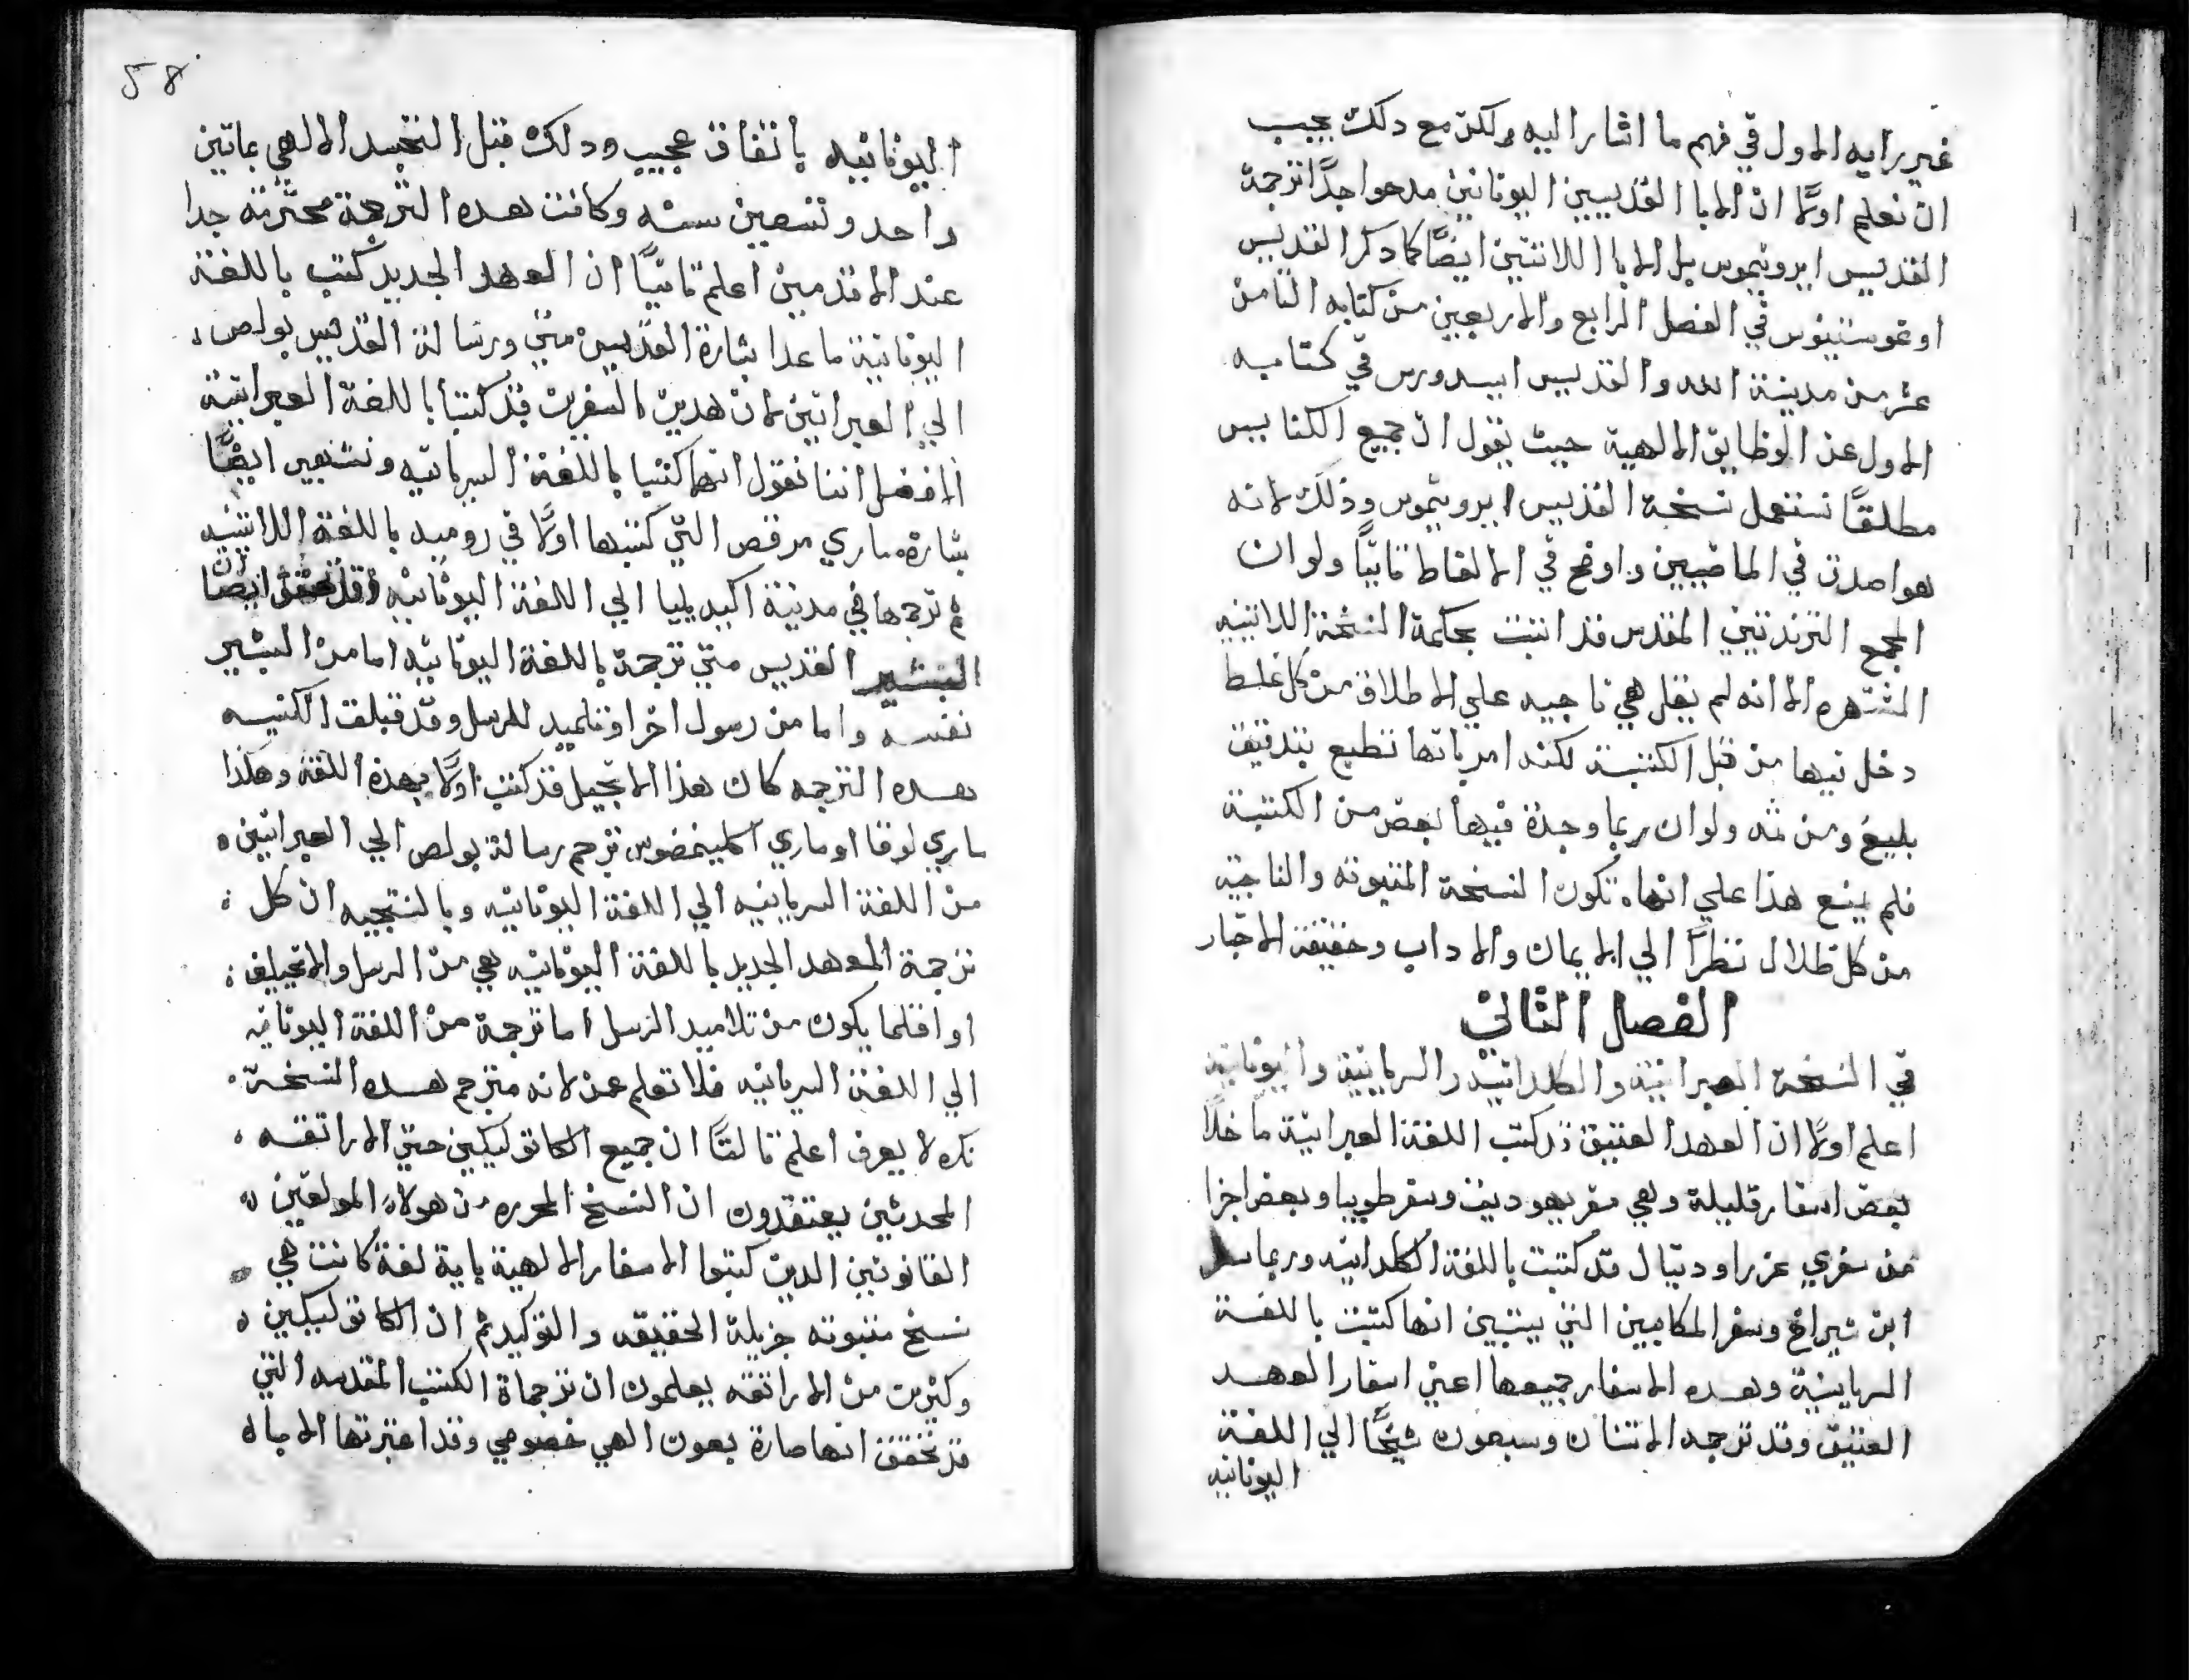 غير رايه الاول في فهم ما اشار اليه ولكن مع دلك يجيب
ان نعلم اولًا ان الابا القديسين اليونانين مدحوا جدًا ترجمة
القديس ايرونيموس بل الابا اللاتنين ايضًا كما دكر القديس
اوغوستينوس في الفصل الرابع والاربعين من كتابه التامن
عشر من مدينة الله والقديس ايسدورس في كتابه
الاول عن الوظايق الالهية حيث يقول ان جميع الكنايس
مطلقًا تستعمل نسخة القديس ايرونيموس وذلك لانه
هو اصدق في الماضيين واوضح في الالفاظ تانيًا ولو ان
المجمع الترندتيني المقدس قد اتبت بحكمة النسخة اللاتينيه
المشتهره الا انه لم يقل هي ناجيه علي الاطلاق من كل غلط
دخل فيها من قبل الكتبة لكنه امر بانها تطبع بتدقيق
بليغ ومن تمه ولو ان ربما وجدة فيها بعض من الكتبة
فلم يمنع هذا علي انها تكون النسخة المتبوته والناجية
من كل ظلال نظرًا الي الايمان والاداب وحقيقة الاخبار
الفصل الثاني
في النسخة العبرانية والكلدانيه والسريانية واليونانيه
اعلم اولًا ان العهد العتيق قد كتب اللغة العبرانية ما خلا
بعض اسفار قليلة وهي سفر يهوديت وسفر طوبيا وبعض اجزا
من سفري عزرا ودنيال قد كتبت باللغة الكلدانيه وربما سفر
ابن شيراخ وسفر المكابيين التي يبتين انها كتبت باللغة
السريانية وهده الاسفار جميعها اعني اسفار العهد
العتيق وقد ترجمه الاتنان وسبعون شيخًا الي اللغة
اليونانيه
58
اليونانيه باتفاق عجيب ودلك قبل التجسد الالهي بماتين
واحد وتسعين سنه وكانت هده الترجمة محترمة جدا
عند الاقدمين اعلم تانيًا ان العهد الجديد كتب باللغة
اليونانية ما عدا بشارة القديس متي ورسالة القديس بولص
الي العبرانين لان هدين السفرين قد كتبا باللغة العبرانية
الافضل اننا نقول انهما كتبا باللغة السريانيه ونستعين ايضًا
بشارة ماري مرقص التي كتبها اولًا في روميه باللغة اللاتينيه
تم ترجمها في مدينة اكيديليا الي اللغة اليونانيه وقد ايضا
البشير القديس متي ترجمة باللغة اليونانيه اما من البشير
نفسه واما من رسول اخر او تلميد للرسل وقد قبلت الكنيسه
هده الترجمه كان هذا الانجيل قد كتب اولًا بهذة اللغة وهكذا
ماري لوقا او ماري اكليمنضوس ترجم رسالة بولص الي العبرانين
من اللغة السريانيه الي اللغة اليونانيه وبالنتجيه ان كل
ترجمة العهد الجديد باللغة اليونانيه هي من الرسل والانجيليين
او اقلما يكون من تلاميد الرسل اما ترجمة من اللغة اليونانيه
الي اللغة السريانيه فلا تعلم عن لانه مترجم هده النسخة
نكره لا يعرف اعلم تالتًا ان جميع الكاتوليكيين حتي الاراتقه
المحدثين يعتقدون ان النسخ المحرره من هولاء المولفين
القانونين الدين كتبوا الاسفار الالهية باية لغة كانت هي
نسخ متبوته جزيلة الحقيقه والتوكيد تم ان الكاتوليكيين
وكثيرين من الاراتقه يعلمون ان ترجماة الكتب المقدسه التي
قد تحقق انها صارة بعون الهي خصوصي وقد اعتبرتها الابا